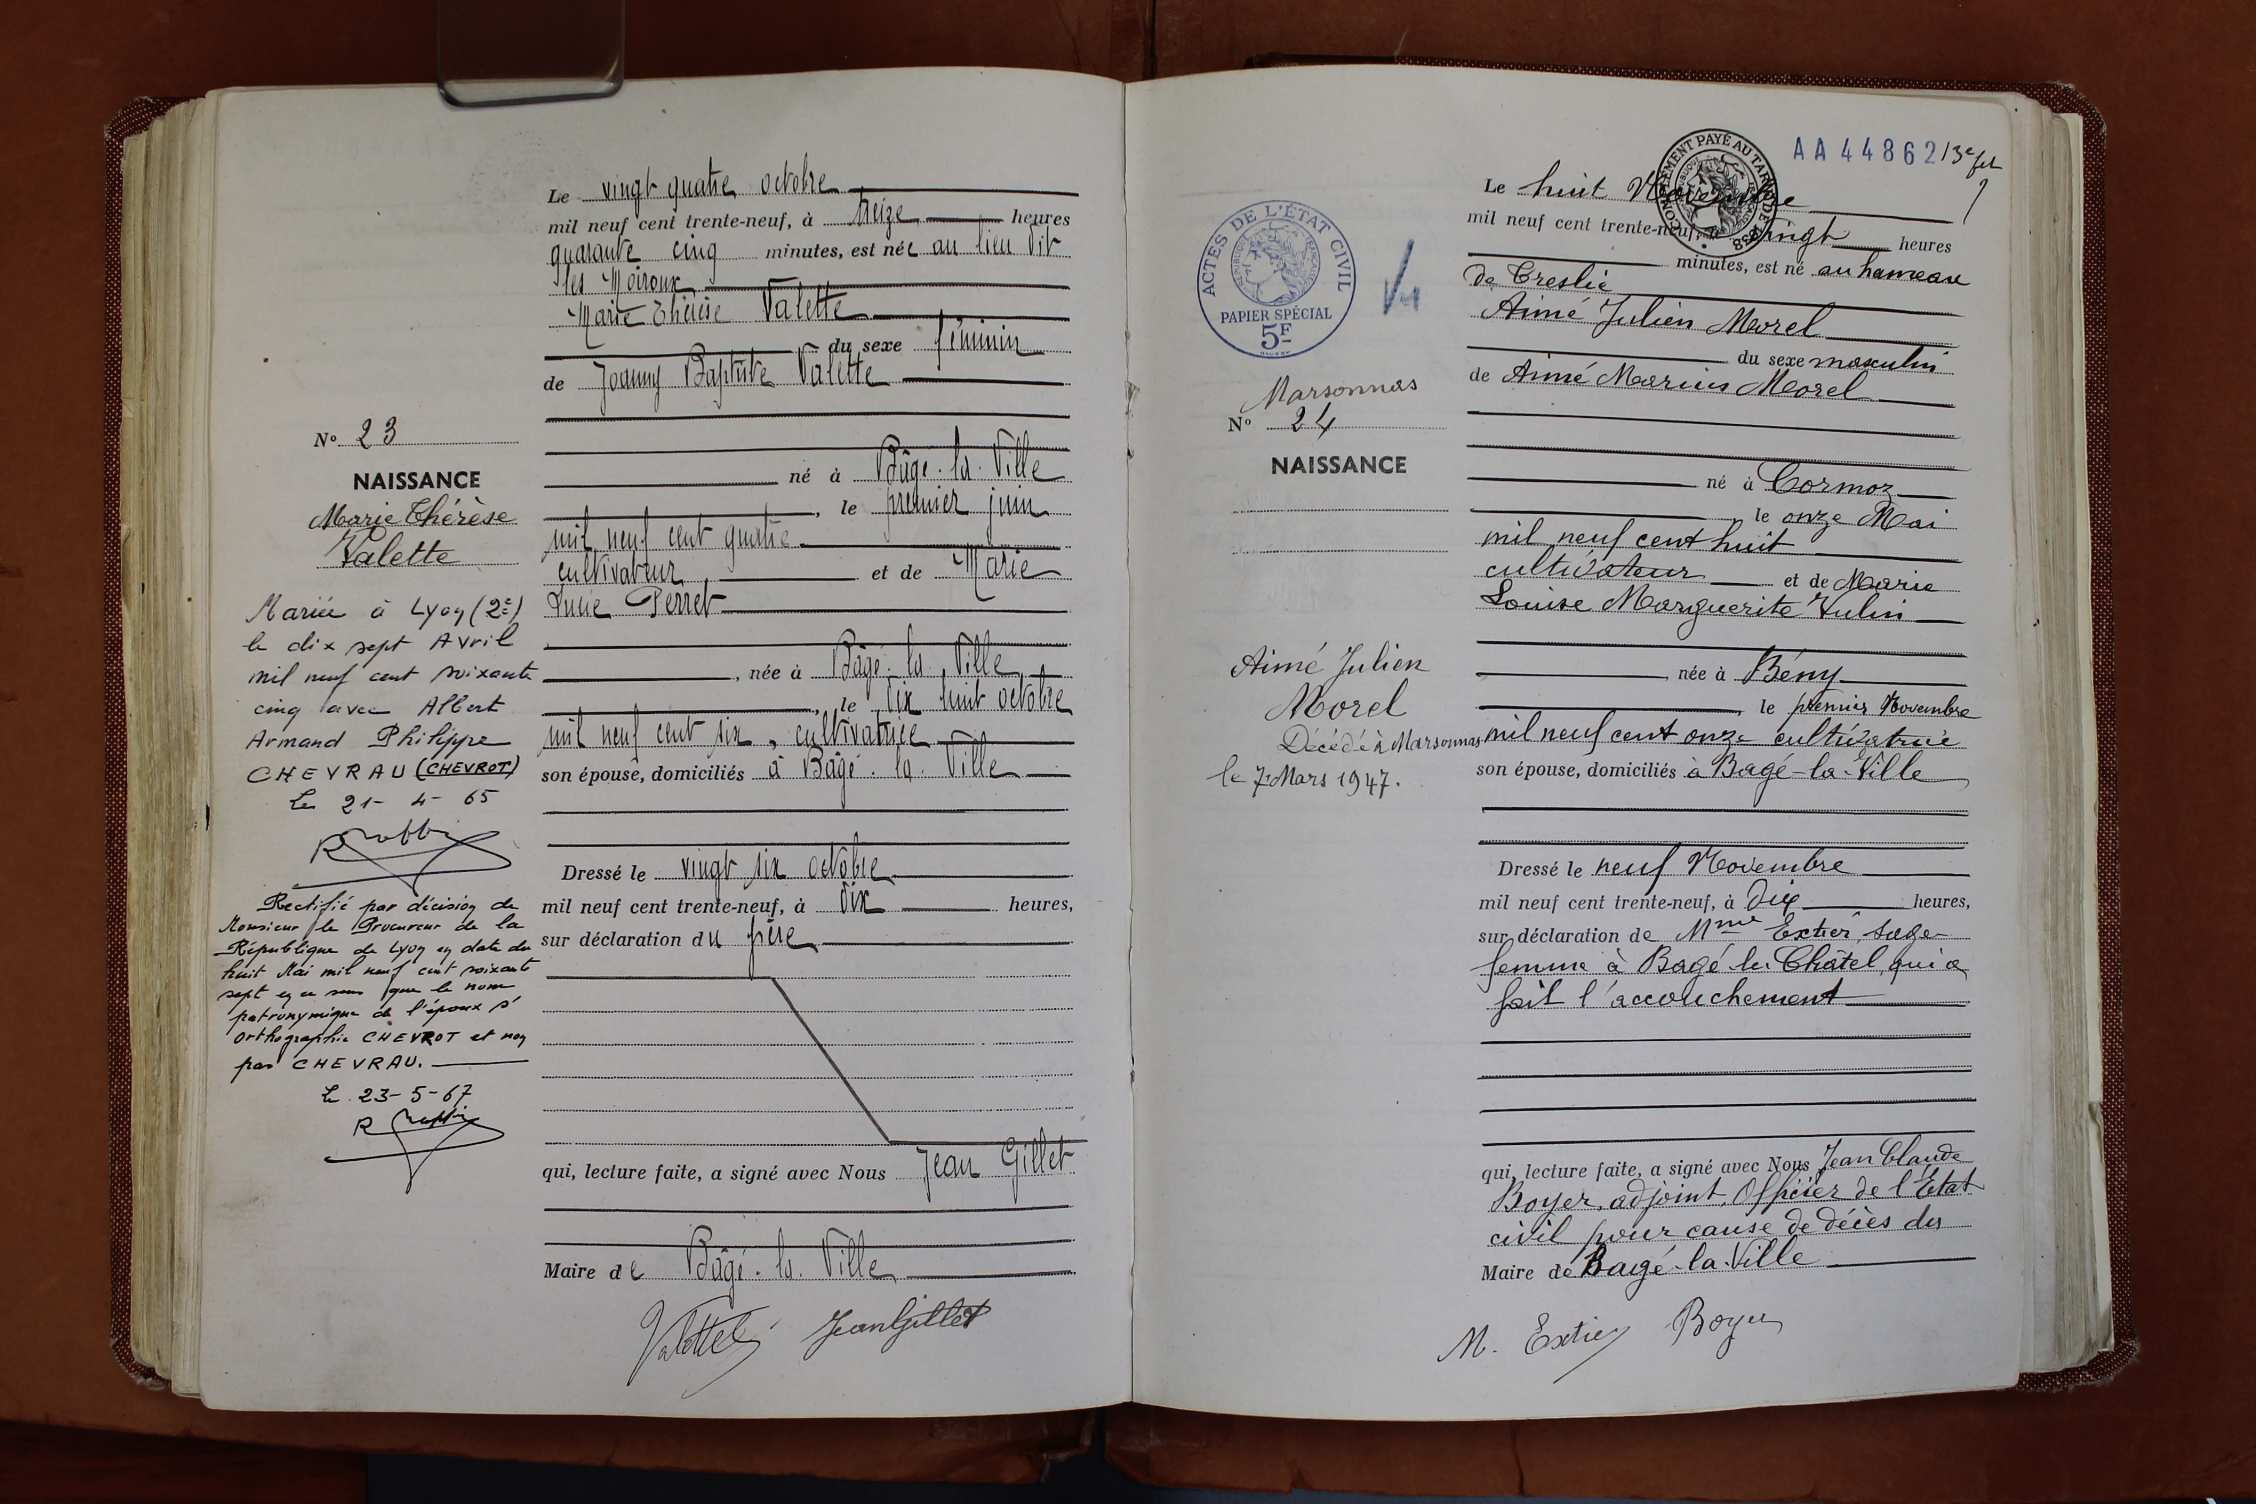 Le vingt quatre octobre
mil neuf cent trente-neuf, à treize heures
quarante cinq minutes, est née au lieu dit
les Moiroux
Marie Thérèse Valette
du sexe féminin
de Joanny Baptiste Valette
né à Bâgé-la-Ville
, le premier juin
mil neuf cent quatre
cultivateur, et de Marie
Lucie Perret
, née à Bâgé-la-Ville
, le dix huit octobre
mil neuf cent six, cultivatrice
son épouse, domiciliés à Bâgé-la-Ville
Dressé le vingt six octobre
mil neuf cent trente-neuf, à dix heures,
sur déclaration du père
qui, lecture faite, a signé avec Nous Jean Gillet
Maire de Bâgé-la-Ville
Valette Jean Gillet
No 23
NAISSANCE
Marie Thérèse
Valette
Mariée à Lyon (2e)
le dix sept Avril
mil neuf cent soixante
cinq avec Albert
Armand Philippe
CHEVRAU (CHEVROT)
Le 21-4-65
Rectifié par décision de
Monsieur le Procureur de la
République de Lyon en date du
huit Mai mil neuf cent soixante
sept en ce sens que le nom
patronymique de l'époux s'
orthographie CHEVROT et non
pas CHEVRAU.
Le 23-5-67
ACTES DE L'ÉTAT CIVIL
PAPIER SPÉCIAL
5F
Marsonnas
No 24
NAISSANCE
Aimé Julien
Morel
Décédé à Marsonnas
le 7 Mars 1947.
COMPLÉMENT PAYÉ AU TARIF DE 1938
AA 44862 13e
Le huit Novembre
mil neuf cent trente-neuf, à vingt heures
minutes, est né au hameau
de Creslie
Aimé Julien Morel
du sexe masculin
de Aimé Marius Morel
né à Cormoz
le onze Mai
mil neuf cent huit
cultivateur et de Marie
Louise Marguerite Julin
, née à Bény
, le premier Novembre
mil neuf cent onze cultivatrice
son épouse, domiciliés à Bagé-la-Ville
Dressé le neuf Novembre
mil neuf cent trente-neuf, à dix heures,
sur déclaration de Mme Extier, sage
femme à Bagé le Châtel, qui a
fait l'accouchement
qui, lecture faite, a signé avec Nous Jean Claude
Boyer, adjoint, Officier de l'Etat
civil pour cause de décès du
Maire de Bagé-la-Ville
M. Extier Boyer